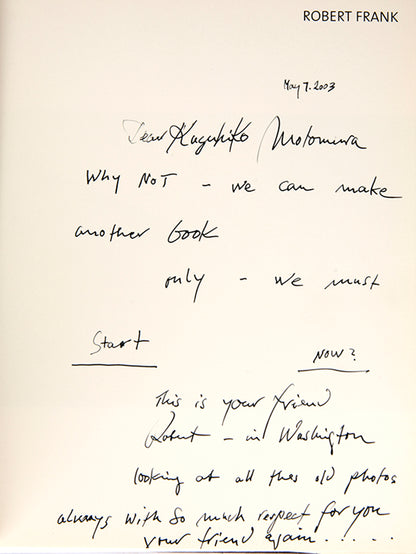 ROBERT FRANK
May 7. 2003
Dear Kazuhiko Motomura
Why NOT - we can make
another book
only - we must
Start NOW?
This is your friend
Robert - in Washington
looking at all thes old photos
always with so much respect for you
your friend again.....